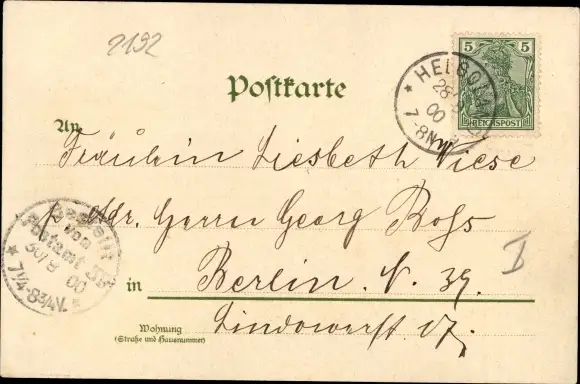 2192
5 5
REICHSPOST
* HELGOLAND
28 9
00
7-8N
Postkarte
An
Fräulein Liesbeth Wiese
p. Adr. Herrn Georg Boss
in Berlin. N. 39.
Lindowerst. 17.
Wohnung
(Straße und Hausnummer)
Bestellt
vom
Postamt 39
30/9 00
* 7¼-8¾V. *
I